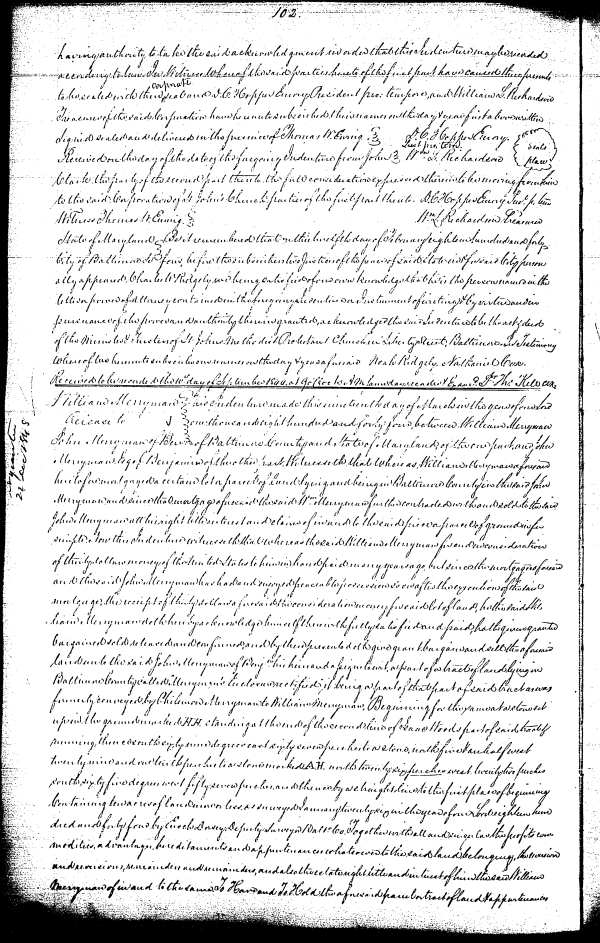 102.
having authority to take the said acknowledgment in order that this Indenture may be recorded
according to law. In Witness whereof the said parties hereto of the first part have caused these presents
to be sealed with their corporate seal and D. C. Hopper Emory President pro: tempore, and William L. Richardson
Treasurer of the said Corporation have hereunto subscribed their names on the day & year first above written
Signed sealed and delivered in the presence of Thomas W. Ewing. D. C. Hopper Emory.
Prest pro tem.
Wm L Richardson
seals
place
Received on the day of the date of the foregoing Indenture from John
Clark, the party of the second part thereto, the full consideration expressed therein to be moving from him
to the said Corporation of St. John's Church parties of the first part thereto. D. C. Hopper Emory Prest. p. tem
Witness Thomas W. Ewing. Wm L. Richardson Treasurer
State of Maryland Be it remembered that on this twelfth day of February eighteen hundred and forty
City of Baltimore to wit four, before the subscribers two Justices of the peace of said State in & for said City person
ally appeared Charles W Ridgely, we being satisfied of our own knowledge that he is the person named in the
letter or power of Attorney contained in the foregoing Indenture or Instrument of writing & by virtue and in
pursuance of the power and authority therein granted, acknowledged the said Indenture to be the act & deed
of the Ministers & of St. John's Methodist Protestant Church in Liberty Street, Baltimore. In Testimony
whereof we hereunto subscribe our names on the day & year aforesaid Noah Ridgely Nathaniel Cox.
Received to be recorded the 10th day of September 1846, at 9 o'clock A.M. same day recorded & Examd Pr Thos Kell Clk
William Merryman This Indenture made this nineteenth day of March in the year of our Lord
Release to one thousand eight hundred and forty four, between William Merryman
John Merryman of Benj of Baltimore County and State of Maryland, of the one part, and John
Merryman Esq of Benjamin of the other part, Witnesseth that Whereas, William Merryman aforesaid
heretofore mortgaged a certain lot or parcel of Land lying and being in Baltimore County, to the said John
Merryman and since the mortgage aforesaid the said Wm Merryman further contracted with and sold to the said
John Merryman all his right title interest and claim of in and to the said piece or parcel of ground in fee
simple. Now this Indenture witnesseth that whereas the said William Merryman for and in consideration
of thirty dollars money of the United States to him in hand paid many years ago but since the mortgage aforesaid
and the said John Merryman has had and enjoyed peaceable possession soon after the execution of the said
mortgage, the receipt of thirty dollars aforesaid the consideration money for said lot of land, he the said Wil
liam Merryman doth hereby acknowledge himself therewith fully satisfied and paid, hath given granted
bargained sold released and confirmed, and by these presents doth give grant bargain and sell the aforesaid
land unto the said John Merryman of Benjn his heirs and assigns &c, a part of a tract of land lying in
Baltimore County called Merryman's Inclosure rectified, it being a part of that part of said tract as was
formerly conveyed by Merryman to William Merryman, Beginning for the same at a stone set
up in the ground marked H.H. standing at the end of the second line of Woods part of said tract &
running thence south sixty nine degrees east sixty seven perches to a stone, north five & an half west
twenty nine and one perches to a stone marked A.H. north twenty six perches west twenty two perches
south sixty five degrees west fifty seven perches and then with a straight line to the first place of beginning
Containing ten acres of land more or less, as surveyed January twenty six in the year of our Lord eighteen hun
dred and forty four by Enoch Dorsey Deputy Surveyor Balto Co. Together with all and singular the profits com
modities, advantages, hereditaments and appurtenances whatsoever to the said land belonging, the reversion
and reversions, remainder and remainders, and also the estate right title and interest of him the said William
Merryman of in and to the same. To Have and To Hold the aforesaid parcel or tract of land & appurtenances
24 Dec 1848